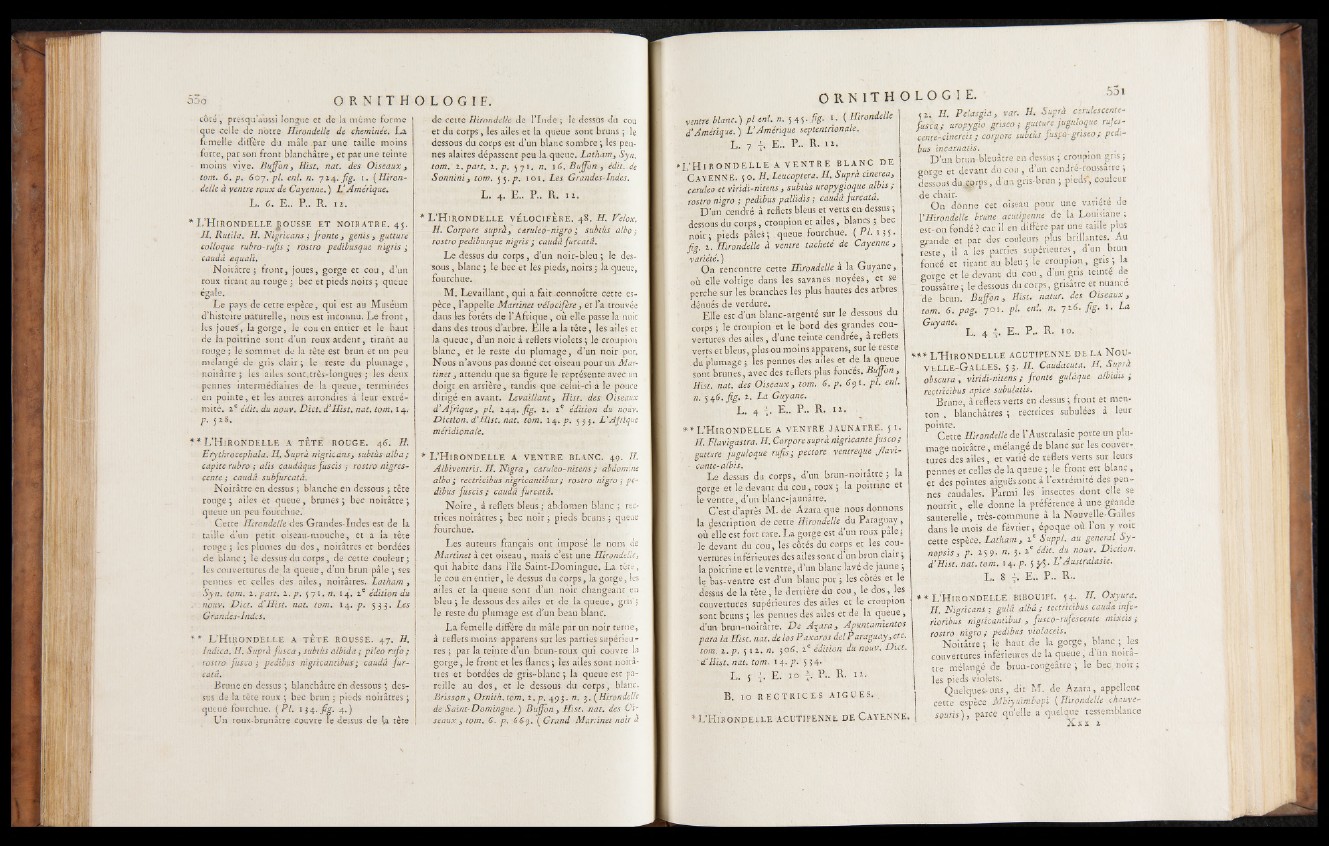 530 ORNITHOLOGIE.
côté, presqu'aussi longue et de la même forme
que celle de notre Hirondelle de cheminée. La
femelle diffère du mâle par une taille moins
forte, par son front blanchâtre, et par une teinte
moins vive. Buffon, Hist. nat. des Oiseaux,
tom. 6. p. 607. pl. enl. n. 724. fig. 1. (Hiron-
delle à ventre roux de Cayenne.) L'Amérique.
L. 6. E.. P.. R. 12.
* L'HIRONDELLE ROUSSE ET NOIRATRE. 45.
H. Rutila. H. Nigricans; fronte, genis, gutture
colloque rubro-rufis; rostro pedibusque nigris;
caudâ equali.
Noirâtre; front, joues, gorge et cou, d'un
roux tirant au rouge; bec et pieds noirs; queue
égale.
Le pays de cette espèce, qui est au Muséum
d'histoire naturelle, nous est inconnu. Le front,
les joues, la gorge, le cou en entier et le haut
de la poitrine sont d'un roux ardent, tirant au
rouge; le sommet de la tête est brun et un peu
mélangé de gris clair; le reste du plumage,
noirâtre; les ailes sont très-longues; les deux
pennes intermédiaires de la queue, terminées
en pointe, et les autres arrondies à leur extré-
mité. 2e édit. du nouv. Dict. d'Hist. nat. tom. 14.
p. 528.
** L'HIRONDELLE A TÊTE ROUGE. 46. H.
Erythrocephala. H. Suprà nigricans, subtùs alba;
capite rubro; alis caudâque fuscis; rostro nigres-
cente; caudâ subfurcatâ.
Noirâtre en dessus; blanche en dessous; tête
rouge; ailes et queue, brunes; bec noirâtre;
queue un peu fourchue.
Cette Hirondelle des Grandes-Indes est de la
taille d'un petit oiseau-mouche, et a la tête
rouge; les plumes du dos, noirâtres et bordées
de blanc; le dessus du corps, de cette couleur;
les couvertures de la queue, d'un brun pâle; ses
pennes et celles des ailes, noirâtres. Latham,
Syn. tom. 2. part. 2. p. 571. n. 14. 2e édition du
nouv. Dict. d'Hist. nat. tom. 14. p. 533. Les
Grandes-Indes.
** L'HIRONDELLE A TÊTE ROUSSE. 47. H.
Indica. H. Suprà fusca, subtùs albida; pileo rufo;
rostro fusco; pedibus nigricantibus; caudâ fur-
catâ.
Brune en dessus; blanchâtre en dessous; des-
sus de la tête roux; bec brun; pieds noirâtres;
queue fourchue. (Pl. 134. fig. 4.)
Un roux-brunâtre couvre le dessus de la tête
de cette Hirondelle de l'Inde; le dessus du cou
et du corps, les ailes et la queue sont bruns; le
dessous du corps est d'un blanc sombre; les pen-
nes alaires dépassent peu la queue. Latham, Syn.
tom. 2. part. 2. p. 571. n. 16. Buffon, édit. de
Sonnini, tom. 55. p. 101. Les Grandes-Indes.
L. 4. E.. P.. R. 12.
* L'HIRONDELLE VÉLOCIFÈRE. 48. H. Velox.
H. Corpore suprà, caruleo-nigro; subtùs albo;
rostro pedibusque nigris; caudâ furcatâ.
Le dessus du corps, d'un noir-bleu; le des-
sous, blanc; le bec et les pieds, noirs; la queue,
fourchue.
M. Levaillant, qui a fait connoître cette es-
pèce, l'appelle Martinet vélocifère, et l'a trouvée
dans les forêts de l'Afrique, où elle passe la nuit
dans des trous d'arbre. Elle a la tête, les ailes et
la queue, d'un noir à reflets violets; le croupion
blanc, et le reste du plumage, d'un noir pur.
Nous n'avons pas donné cet oiseau pour un Mar-
tinet, attendu que sa figure le représente avec un
doigt en arrière, tandis que celui-ci a le pouce
dirigé en avant. Levaillant, Hist. des Oiseaux
d'Afrique, pl. 244. fig. 2. 2e édition du nouv.
Diction. d'Hist. nat. tom. 14. p. 535. L'Afrique
méridionale.
* L'HIRONDELLE A VENTRE BLANC. 49. H.
Albiventris. H. Nigra, caruleo-nitens; abdomine
albo; rectricibus nigricantibus; rostro nigro; pe-
dibus fuscis; caudâ furcatâ.
Noire, à reflets bleus; abdomen blanc; rec-
trices noirâtres; bec noir; pieds bruns; queue
fourchue.
Les auteurs français ont imposé le nom de
Martinet à cet oiseau, mais c'est une Hirondelle,
qui habite dans l'île Saint-Domingue. La tête,
le cou en entier, le dessus du corps, la gorge, les
ailes et la queue sont d'un noir changeant en
bleu; le dessous des ailes et de la queue, gris;
le reste du plumage est d'un beau blanc.
La femelle diffère du mâle par un noir terne,
à reflets moins apparens sur les parties supérieu-
res; par la teinte d'un brun-roux qui couvre la
gorge, le front et les flancs; les ailes sont noirâ-
tres et bordées de gris-blanc; la queue est pa-
reille au dos, et le dessous du corps, blanc.
Brisson, Ornith. tom. 2. p. 493. n. 3. (Hirondelle
de Saint-Domingue.) Buffon, Hist. nat. des Oi-
seaux, tom. 6. p. 669. (Grand Martinet noir à
ORNITHOLOGIE. 531
ventre blanc.) pl enl. n. 545. fig. 1. (Hirondelle
d'Amérique.) L'Amérique septentrionale.
L. 7 1/4. E.. P.. R. 12.
* L'HIRONDELLE A VENTRE BLANC DE
CAYENNE. 50. H. Leucoptera. H. Suprà cinerea,
caruleo et viridi-nitens, subtùs uropygioque albis;
rostro nigro; pedibus pallidis; caudâ furcatâ.
D'un cendré à reflets bleus et verts en dessus;
dessous du corps, croupion et ailes, blancs; bec
noir; pieds pâles; queue fourchue. (Pl. 135.
fig. 2. Hirondelle à ventre tacheté de Cayenne,
variété.)
On rencontre cette Hirondelle à la Guyane,
où elle voltige dans les savanes noyées, et se
perche sur les branches les plus hautes des arbres
dénués de verdure.
Elle est d'un blanc-argenté sur le dessous du
corps; le croupion et le bord des grandes cou-
vertures des ailes, d'une teinte cendrée, à reflets
verts et bleus, plus ou moins apparens, sur le reste
du plumage; les pennes des ailes et de la queue
sont brunes, avec des reflets plus foncés. Buffon,
Hist. nat. des Oiseaux, tom. 6. p. 691. pl. enl.
n. 546. fig. 2. La Guyane.
L. 4 1/2. E.. P.. R. 12.
** L'HIRONDELLE A VENTRE JAUNATRE. 51.
H. Flavigastra. H. Corpore suprà nigricante fusco;
gutture juguloque rufis; pectore ventreque flavi-
cante-albis.
Le dessus du corps, d'un brun-noirâtre; la
gorge et le devant du cou, roux; la poitrine et
le ventre, d'un blanc-jaunâtre.
C'est d'après M. de Azara que nous donnons
la description de cette Hirondelle du Paraguay,
où elle est fort rare. La gorge est d'un roux pâle;
le devant du cou, les côtés du corps et les cou-
vertures inférieures des ailes sont d'un brun clair;
la poitrine et le ventre, d'un blanc lavé de jaune;
le bas-ventre est d'un blanc pur; les côtés et le
dessus de la tête, le derrière du cou, le dos, les
couvertures supérieures des ailes et le croupion
sont bruns; les pennes des ailes et de la queue,
d'un brun-noirâtre. De Azara, Apuntamientos
para la Hist. nat. de los Paxaros del Paraguay, etc.
tom. 2. p. 512. n. 306. 2e édition du nouv. Dict.
d'Hist. nat. tom. 14. p. 534.
L. 5 1/4. E. 10 3/4. P.. R. 12.
B. 10 RECTRICES AIGUES.
* L'HIRONDELLE ACUTIPENNE DE CAYENNE.
52. H. Pelasgia, var. H. Suprà cerulescente-
fusca; uropygio griseo; gutture juguloque rufes-
cente-cinereis; corpore subtùs fusco-griseo; pedi-
bus incarnatis.
D'un brun bleuâtre en dessus; croupion gris;
gorge et devant du cou, d'un cendré-roussâtre;
dessous du corps, d'un gris-brun; pieds, couleur
de chair.
On donne cet oiseau pour une variété de
l'Hirondelle brune acutipenne de la Louisiane;
est-on fondé? car il en diffère par une taille plus
grande et par des couleurs plus brillantes. Au
reste, il a les parties supérieures, d'un brun
foncé et tirant au bleu; le croupion, gris; la
gorge et le devant du cou, d'un gris teinté de
roussâtre; le dessous du corps, grisâtre et nuancé
de brun. Buffon, Hist. natur. des Oiseaux,
tom. 6. pag. 701. pl. enl. n. 726. fig. 1. La
Guyane.
L. 4 1/2. E.. P.. R. 10.
*** L'HIRONDELLE ACUTIPENNE DE LA NOU-
VELLE-GALLES. 53. H. Caudacuta. H. Suprà
obscura, viridi-nitens; fronte gulâque albidis;
rectricibus apice subulatis.
Brune, à reflets verts en dessus; front et men-
ton, blanchâtres; rectrices subulées à leur
pointe.
Cette Hirondelle de l'Australasie porte un plu-
mage noirâtre, mélangé de blanc sur les couver-
tures des ailes, et varié de reflets verts sur leurs
pennes et celles de la queue; le front est blanc,
et des pointes aiguës sont à l'extrémité des pen-
nes caudales. Parmi les insectes dont elle se
nourrit, elle donne la préférence à une grande
sauterelle, très-commune à la Nouvelle-Galles
dans le mois de février, époque où l'on y voit
cette espèce. Latham, 2e Suppl. au general Sy-
nopsis, p. 259. n. 3. 2e édit. du nouv. Diction.
d'Hist. nat. tom. 14. p. L'Australasie.
L. 8 E.. P.. R..
** L'HIRONDELLE BIBOUIFI. 54. H. Oxyura.
H. Nigricans; gulâ albâ; tectricibus caudâ infe-
rioribus nigricantibus, fusco-rufescente mixtis;
rostro nigro; pedibus violaceis.
Noirâtre; le haut de la gorge, blanc; les
couvertures inférieures de la queue, d'un noirâ-
tre mélangé de brun-rougeâtre; le bec noir;
les pieds violets.
Quelques-uns, dit M. de Azara, appellent
cette espèce Mbiyuimbopi (Hirondelle chauve-
souris), parce qu'elle a quelque ressemblance
Xxx 2